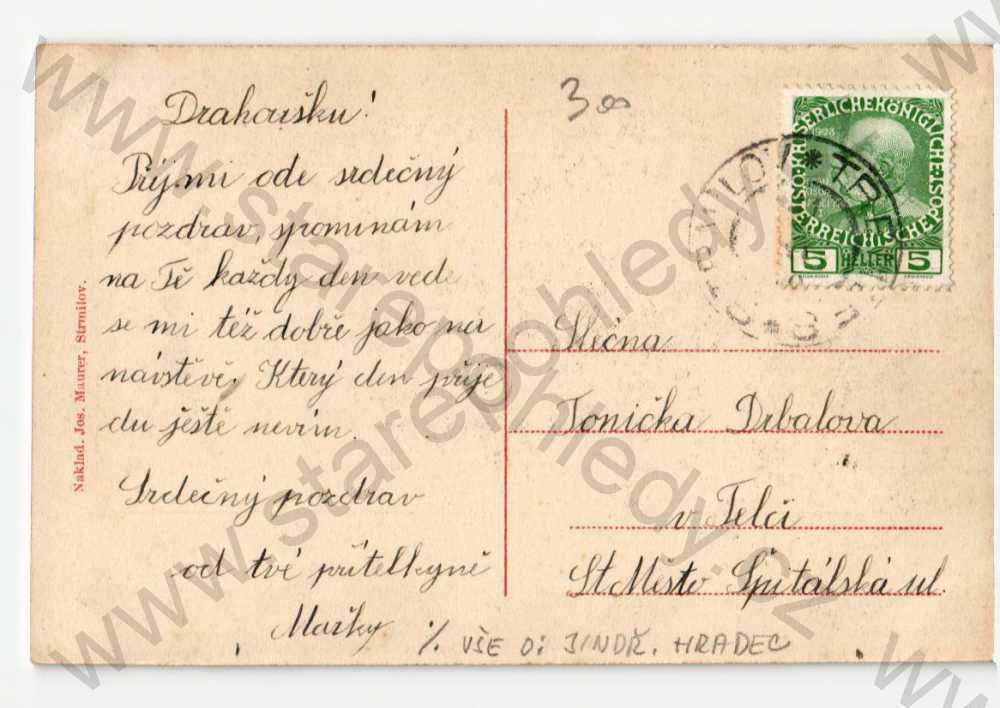 Drahoušku!
Příjmi ode srdečný
pozdrav, spominám
na Tě každy den vede
se mi též dobře jako na
návstěvě. Který den přije
du ještě nevím.
Srdečný pozdrav
od tvé přítelkyně
Mařky
Naklad. Jos. Maurer, Strmilov.
300
1908
KAISERLICHEKÖNIGLICHE POST
ÖSTERREICHISCHE
5 HELLER 5
Slečna
Tonička Drbalova
v Telči
St Mesto Špitálská ul.
·/. VŠE O: JINDŘ. HRADEC
www.starepohledy.cz